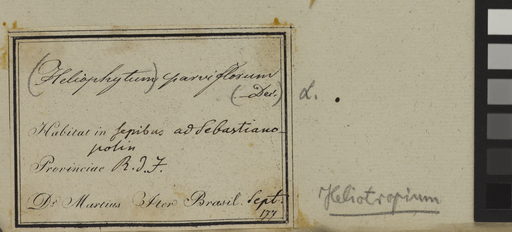 (Heliophytum) parviflorum
(-Dec.) L.
Habitat in sepibus ad Sebastiano-
polin
Provinciae R. d. J.
Dr. Martius Iter Brasil. Sept.
177
Heliotropium